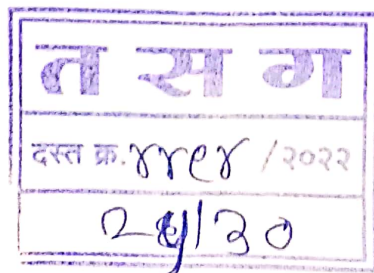 त स ग
दस्त क्र. ४४९४ /२०२२
२५/३०